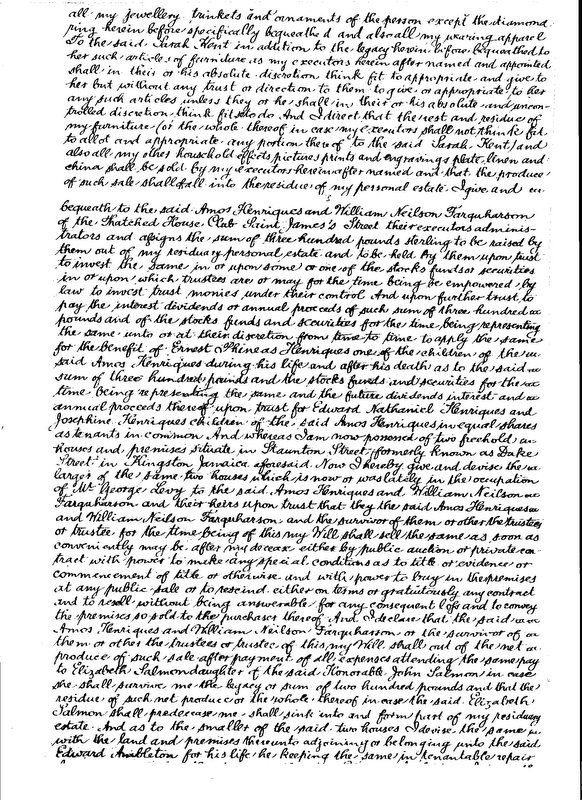 all my jewellery trinkets and ornaments of the person except the diamond
ring herein before specifically bequeathed and also all my wearing apparel
To the said Sarah Kent in addition to the legacy herein before bequeathed to
her such articles of furniture as my executors herein after named and appointed
shall in their or his absolute discretion think fit to appropriate and give to
her but without any trust or direction to them to give or appropriate to her
any such articles unless they or he shall in their or his absolute and uncon-
trolled discretion think fit so to do And I direct that the rest and residue of
my furniture (or the whole thereof in case my executors shall not think fit
to allot and appropriate any portion thereof to the said Sarah Kent) and
also all my other household effects pictures prints and engravings plate linen and
china shall be sold by my executors hereinafter named and that the produce
of such sale shall fall into the residue of my personal estate I give and
bequeath to the said Amos Henriques and William Neilson Farquharson
of the Thatched House Club Saint James's Street their executors adminis-
trators and assigns the sum of three hundred pounds sterling to be raised by
them out of my residuary personal estate and to be held by them upon trust
to invest the same in or upon some or one of the stocks funds or securities
in or upon which trustees are or may for the time being be empowered by
law to invest trust monies under their control And upon further trust to
pay the interest dividends or annual proceeds of such sum of three hundred
pounds and of the stocks funds and securities for the time being representing
the same unto or at their discretion from time to time to apply the same
for the benefit of Ernest Phineas Henriques one of the children of the
said Amos Henriques during his life and after his death as to the said
sum of three hundred pounds and the stocks funds and securities for the
time being representing the same and the future dividends interest and
annual proceeds thereof upon trust for Edward Nathaniel Henriques and
Josephine Henriques children of the said Amos Henriques in equal shares
as tenants in common And whereas I am now possessed of two freehold
houses and premises situate in Staunton Street formerly known as Duke
Street in Kingston Jamaica aforesaid Now I hereby give and devise the
larger of the same two houses which is now or was lately in the occupation
of Mr George Levy to the said Amos Henriques and William Neilson
Farquharson and their heirs upon trust that they the said Amos Henriques
and William Neilson Farquharson and the survivor of them or other the trustees
or trustee for the time being of this my Will shall sell the same as soon as
conveniently may be after my decease either by public auction or private con-
tract with power to make any special conditions as to title or evidence or
commencement of title or otherwise and with power to buy in the premises
at any public sale or to rescind either on terms or gratuitously any contract
and to resell without being answerable for any consequent loss and to convey
the premises so sold to the purchaser thereof And I declare that the said
Amos Henriques and William Neilson Farquharson or the survivor of
them or other the trustees or trustee of this my Will shall out of the net
produce of such sale after payment of all expenses attending the same pay
to Elizabeth Salmon daughter of the said Honorable John Salmon in case
she shall survive me the legacy or sum of two hundred pounds and that the
residue of such net produce or the whole thereof in case the said Elizabeth
Salmon shall predecease me shall sink into and form part of my residuary
estate And as to the smaller of the said two houses I devise the same
with the land and premises thereunto adjoining or belonging unto the said
Edward Ambleton for his life he keeping the same in tenantable repair